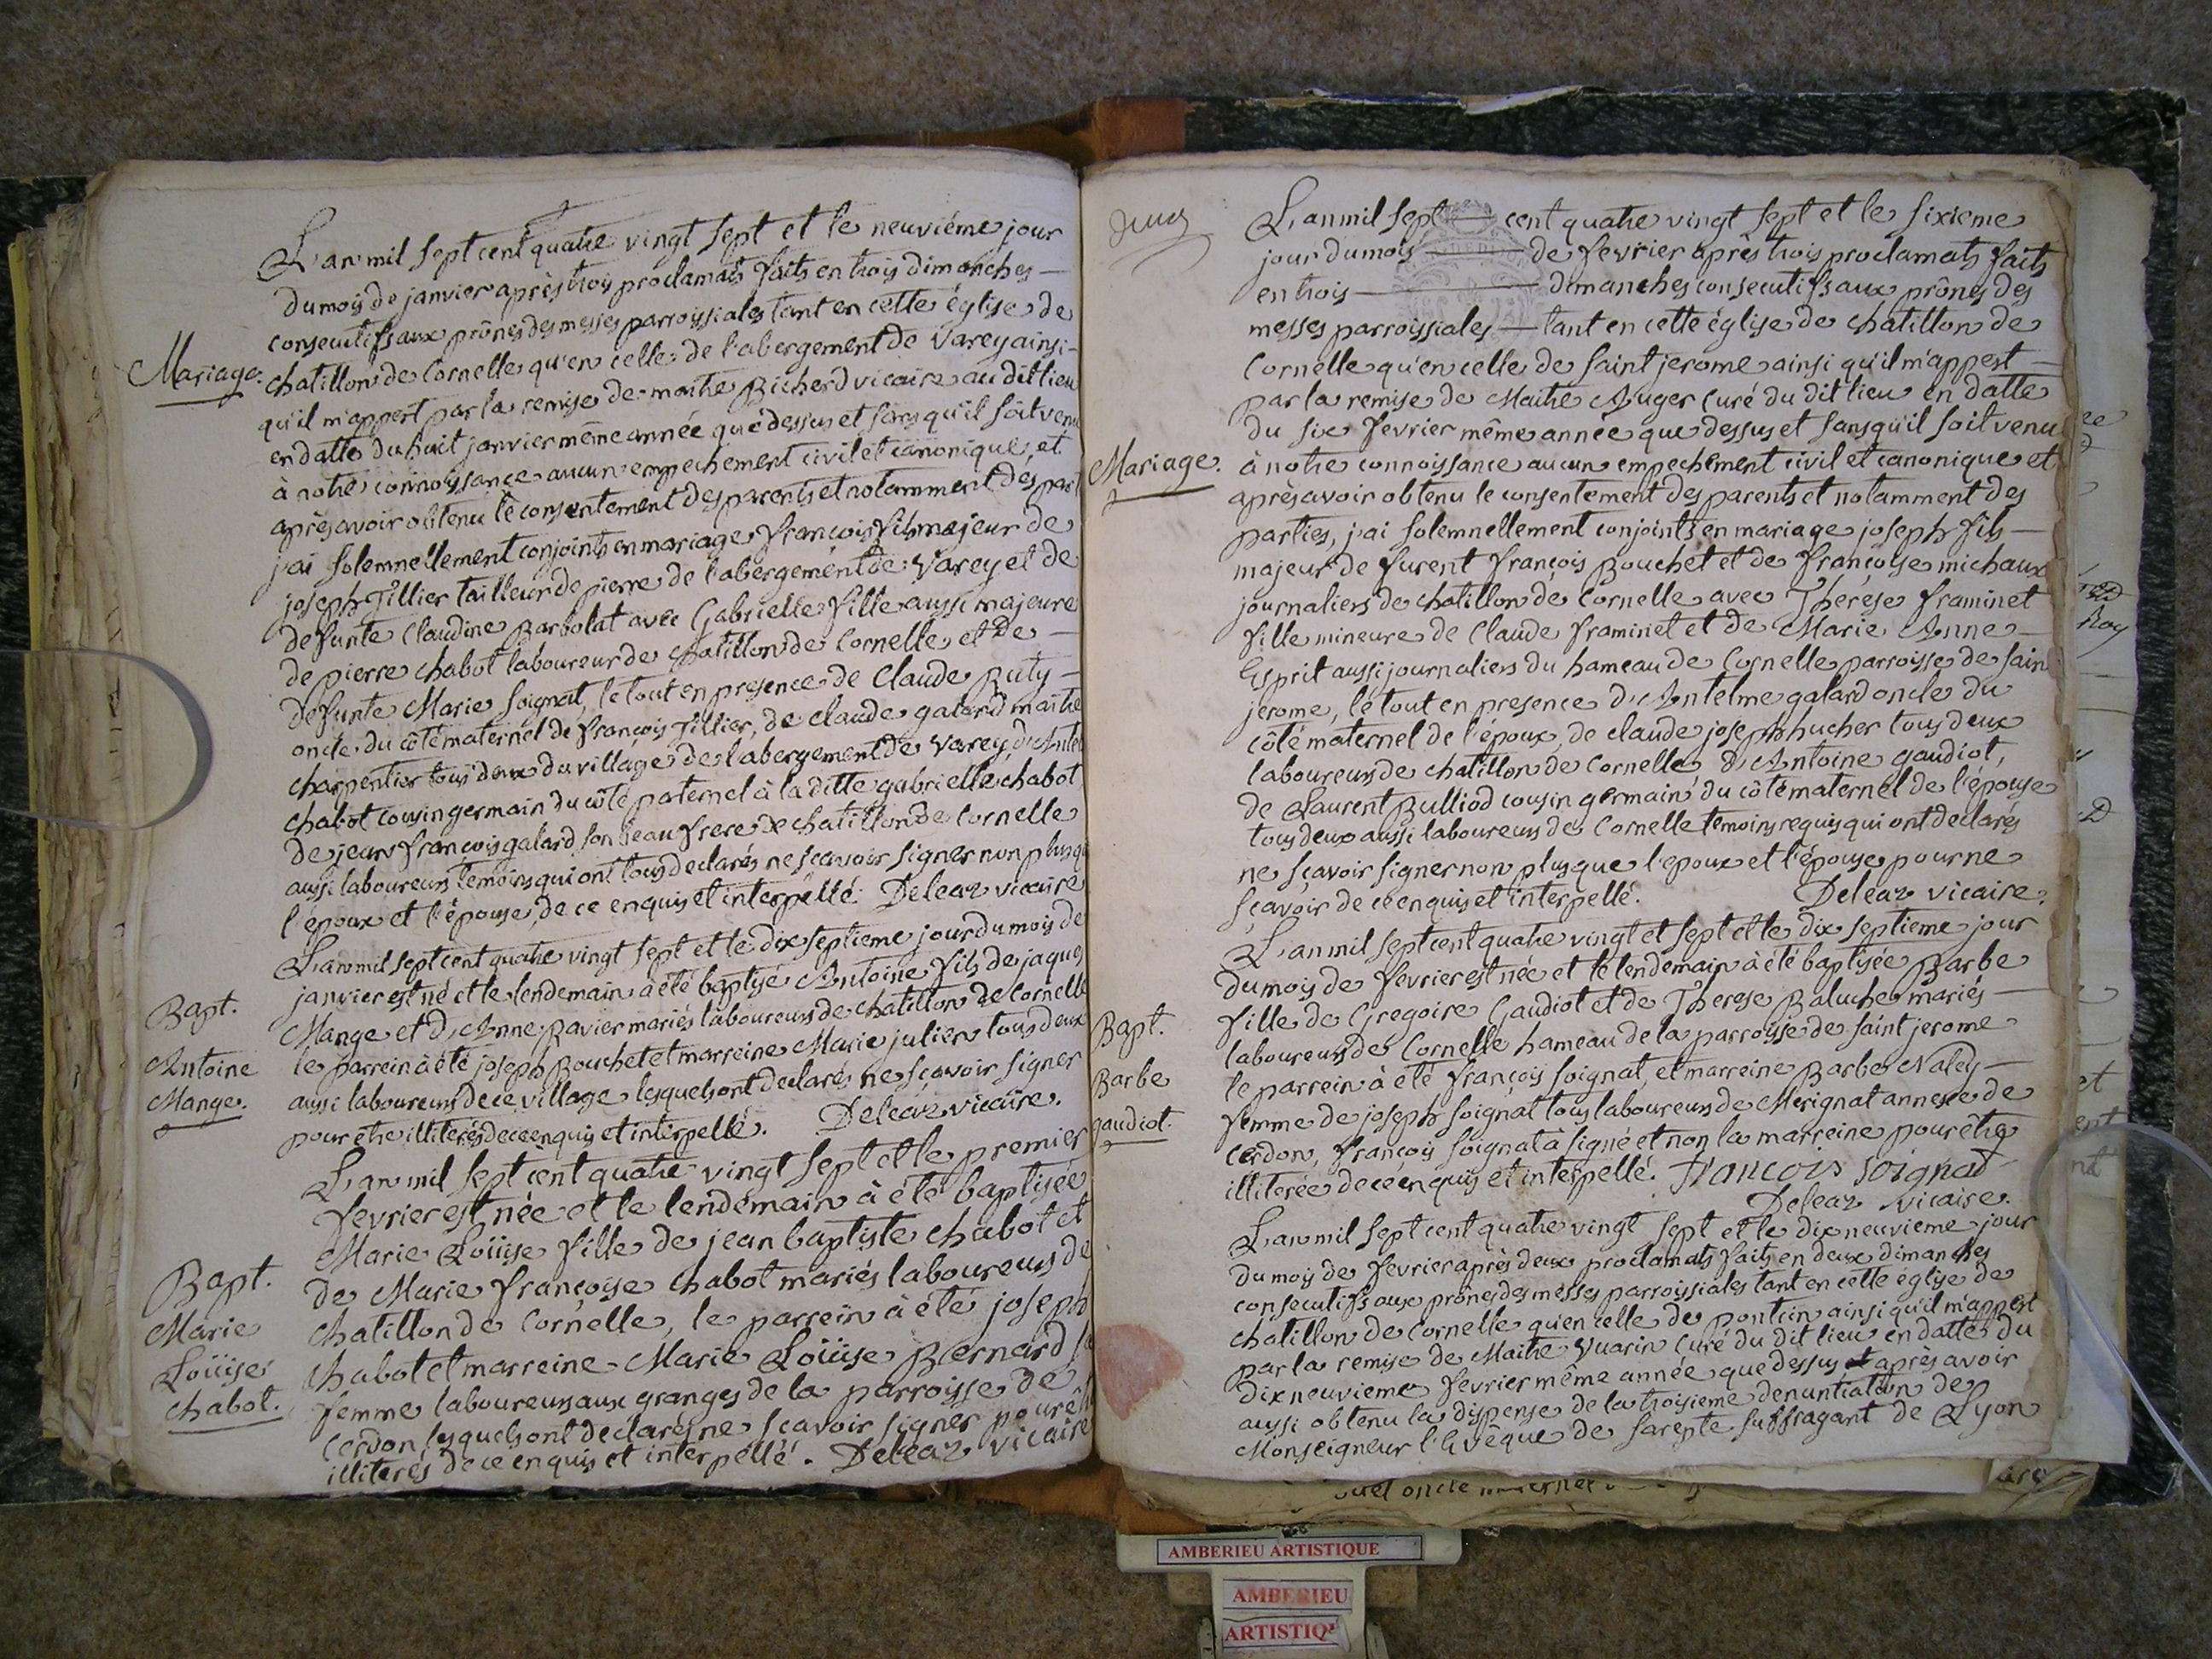 L'an mil sept cent quatre vingt sept et le neuviéme jour
du mois de janvier après trois proclamats faits en trois dimanches
consecutifs aux prônes des messes parroissiales tant en cette église de
Mariage.
chatillon de Cornelle qu'en celle de l'abergement de Varey ainsi
qu'il m'appert par la remise de maitre Richerd vicaire au dit lieu
en datte du huit janvier même année que dessus et sans qu'il soit venu
à notre connoissance aucun empechement civil et canonique, et
après avoir obtenu le consentement des parents et notamment des
j'ai solemnellement conjoints en mariage françois fils majeur de
joseph Tillier tailleur de pierre de l'abergement de Varey et de
defunte Claudine Barbolat avec Gabrielle fille aussi majeure
de pierre chabot laboureur de chatillon de Cornelle et de
defunte Marie Soignat, le tout en presence de Claude Ruty
oncle du côté maternel de françois Tillier, de claude galard maitre
charpentier tous deux du village de l'abergement de Varey,
chabot cousin germain du côté paternel à la ditte gabrielle chabot
de jean françois galard son beau frere de chatillon de Cornelle
aussi laboureurs temoins qui ont tous declarés ne sçavoir signer non plus
l'époux et l'épouse, de ce enquis et interpellé. Deleaz vicaire
L'an mil sept cent quatre vingt sept et le dix septieme jour du mois de
janvier est né et le lendemain a été baptisé Antoine fils de jaques
Bapt.
Antoine
Mange.
Mange et d'Anne Ravier mariés laboureurs de chatillon de Cornelle
le parrein à été joseph Bouchet et marreine Marie julien tous deux
aussi laboureurs de ce village lesquels ont declarés ne sçavoir signer
pour etre illiterés de ce enquis et interpellé. Deleaz vicaire.
L'an mil sept cent quatre vingt sept et le premier
fevrier est née et le lendemain à été baptisée
Bapt.
Marie
Loüise
chabot.
Marie Loüise fille de jean baptiste chabot et
de Marie françoise chabot mariés laboureurs de
chatillon de Cornelle, le parrein à été joseph
chabot et marreine Marie Loüise Bernard
femme laboureurs aux granges de la parroisse de
Cerdon lesquels ont declarés ne sçavoir signer
illiterés de ce enquis et interpellé. Deleaz vicaire
L'an mil sept cent quatre vingt sept et le sixieme
jour du mois de fevrier après trois proclamats faits
en trois dimanches consecutifs aux prônes des
messes parroissiales tant en cette église de chatillon de
Cornelle qu'en celle de saint jerome ainsi qu'il m'appert
par la remise de Maitre Auger Curé du dit lieu en datte
du six fevrier même année que dessus et sans qu'il soit venu
Mariage.
à notre connoissance aucun empechement civil et canonique et
après avoir obtenu le consentement des parents et notamment des
parties, j'ai solemnellement conjoints en mariage joseph fils
majeur de furent françois Bouchet et de françoise michaux
journaliers de chatillon de Cornelle avec Thérése framinet
fille mineure de Claude framinet et de Marie Anne
Esprit aussi journaliers du hameau de Cornelle parroisse de
jerome, le tout en presence d'Antelme galard oncle du
côté maternel de l'époux, de claude joseph hucher tous deux
laboureurs de chatillon de Cornelle, d'Antoine gaudiot,
de Laurent Bulliod cousin germain du côté maternel de l'épouse
tous deux aussi laboureurs de Cornelle temoins requis qui ont declarés
ne sçavoir signer non plus que l'époux et l'épouse pour ne
sçavoir de ce enquis et interpellé. Deleaz vicaire.
L'an mil sept cent quatre vingt et sept et le dix septieme jour
du mois de fevrier est née et le lendemain à été baptisée Barbe
Bapt.
Barbe
gaudiot.
fille de Gregoire Gaudiot et de Therese Baluche mariés
laboureurs de Cornelle hameau de la parroisse de saint jerome
le parrein à été françois Soignat, et marreine Barbe Nalet
femme de joseph Soignat tous laboureurs de Merignat annexe de
Cerdon, françois Soignat à signé et non la marreine pour être
illiterée de ce enquis et interpellé. francois Soignat
Deleaz vicaire.
L'an mil sept cent quatre vingt sept et le dix neuvieme jour
du mois de fevrier après deux proclamats faits en deux dimanches
consecutifs aux prônes des messes parroissiales tant en cette église de
chatillon de Cornelle qu'en celle de pontin ainsi qu'il m'appert
par la remise de Maitre Vuarin Curé du dit lieu en datte du
dix neuvieme fevrier même année que dessus et après avoir
aussi obtenu la dispense de la troisieme denuntiation de
Monseigneur l'Evêque de Sarepte suffragant de Lyon
AMBERIEU ARTISTIQUE
AMBERIEU
ARTISTIQ